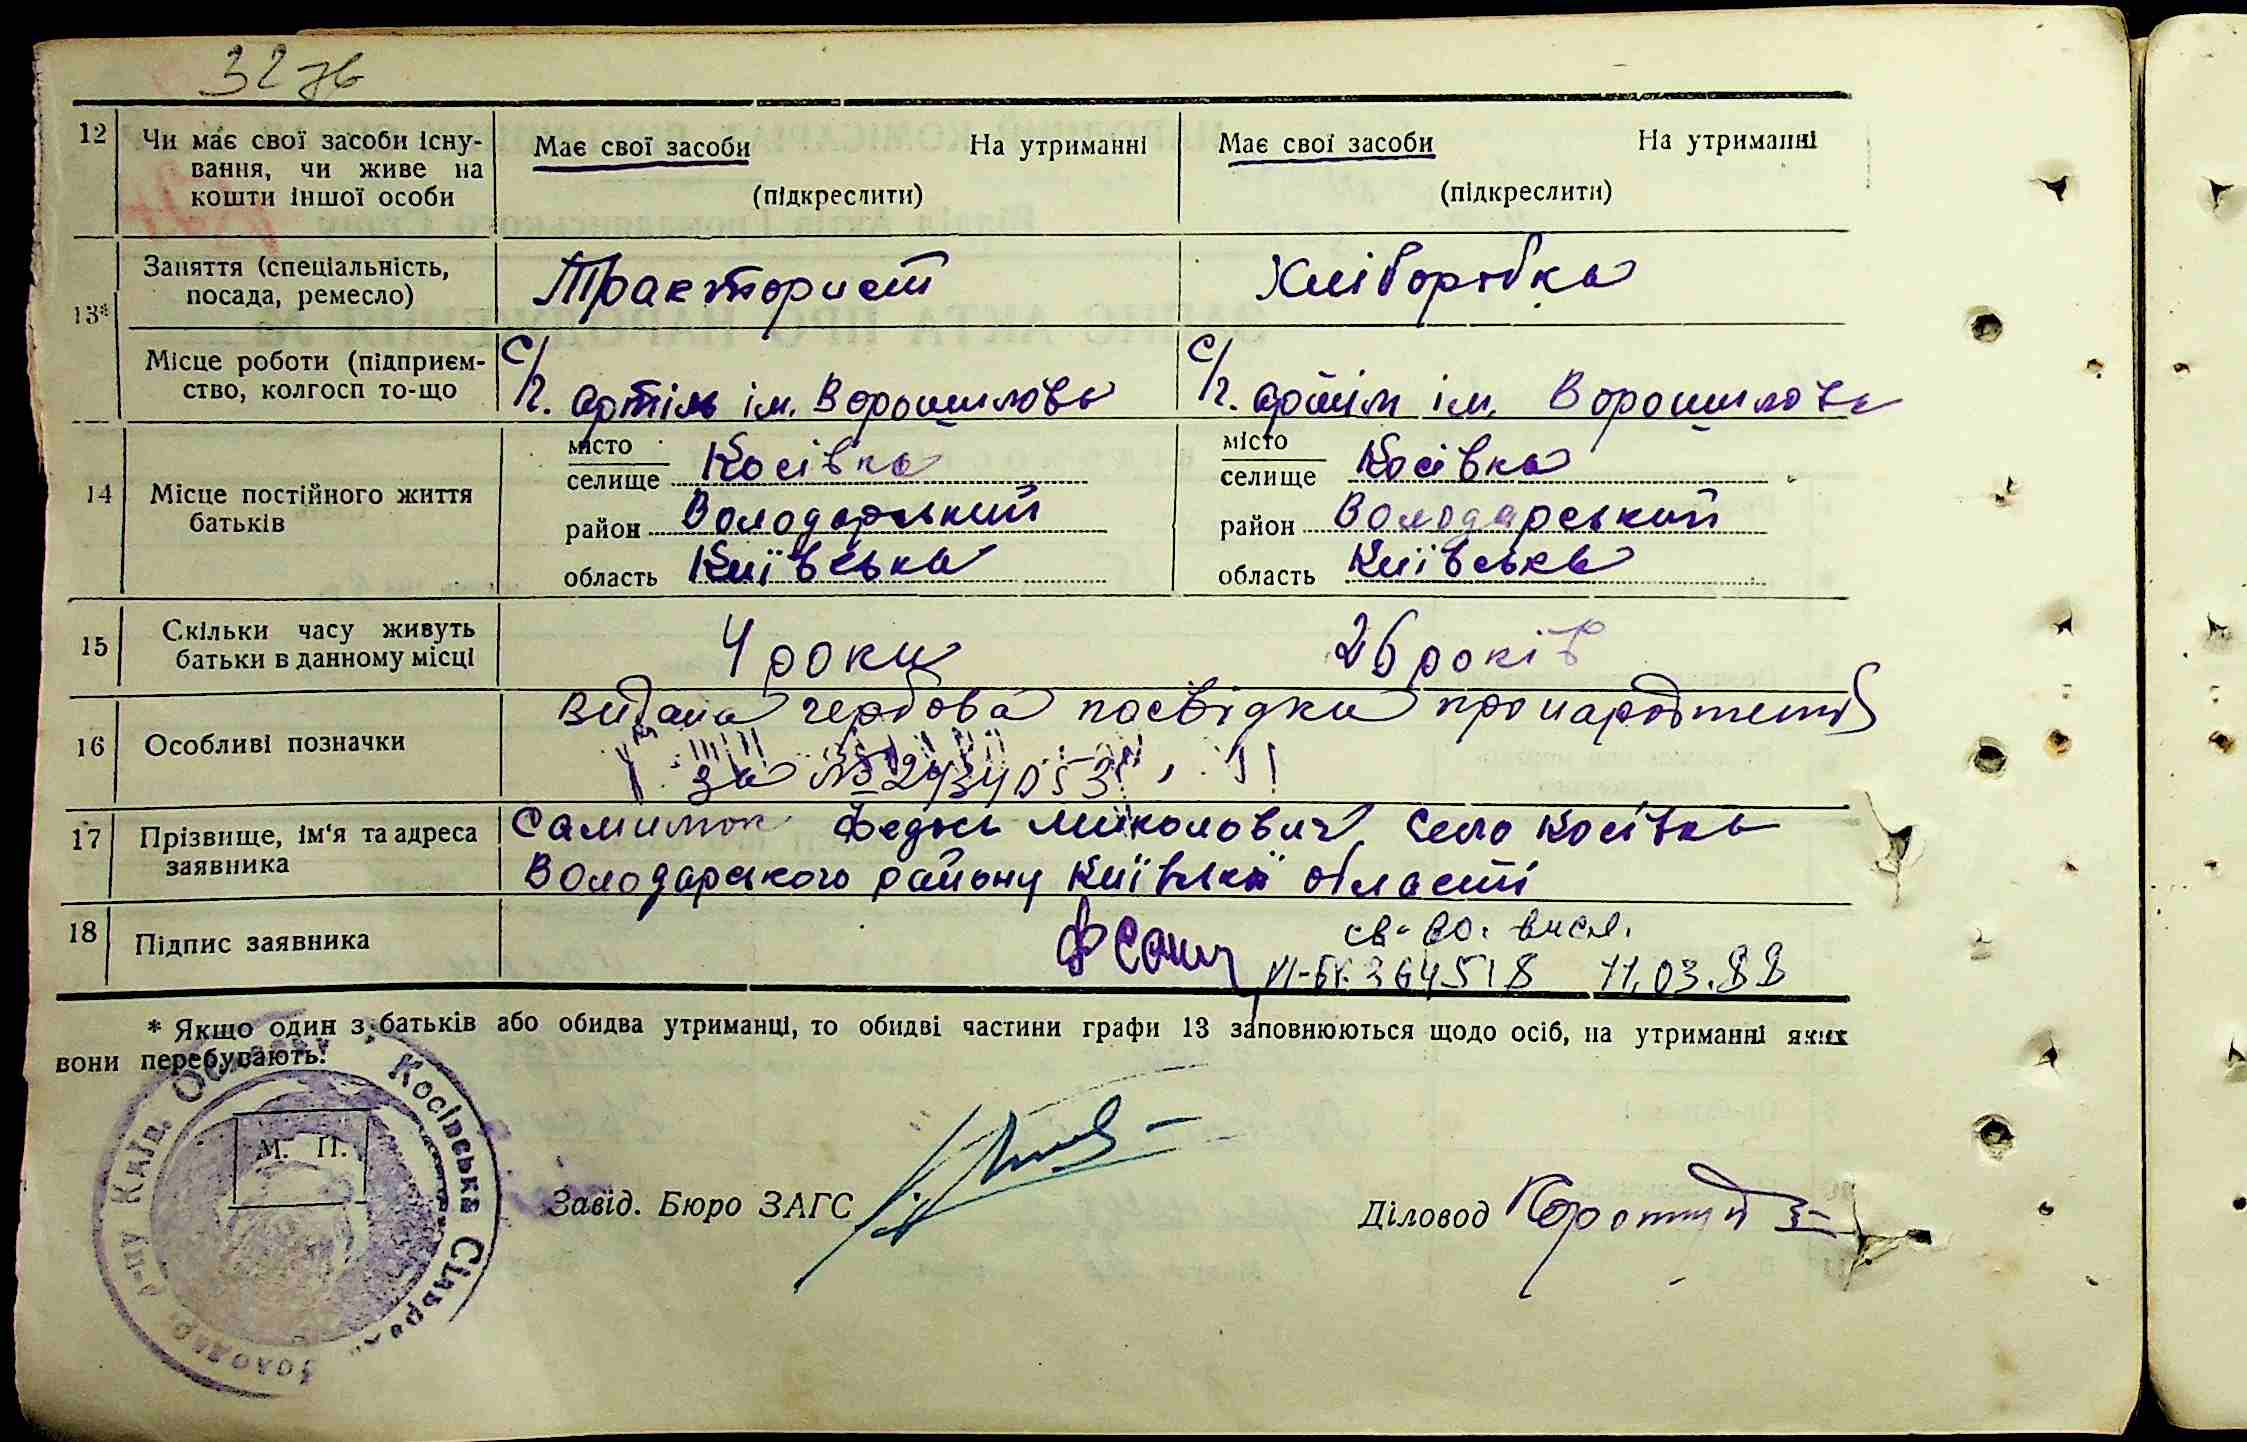 32 зв
12 Чи має свої засоби існування, чи живе на кошти іншої особи
Має свої засоби На утриманні
(підкреслити)
Має свої засоби На утриманні
(підкреслити)
13* Заняття (спеціальність, посада, ремесло)
Тракторист
Хліборобка
Місце роботи (підприємство, колгосп то-що
С/г. артіль ім. Ворошилова
С/г. артіль ім. Ворошилова
14 Місце постійного життя батьків
місто
селище Косівка
район Володарський
область Київська
місто
селище Косівка
район Володарський
область Київська
15 Скільки часу живуть батьки в данному місці
4 роки
26 років
16 Особливі позначки
Видана гербова посвідка про народження
за № 2434053
17 Прізвище, ім'я та адреса заявника
Федось Миколович село Косівка
Володарського району Київської області
18 Підпис заявника
св-во. висл.
364518 11.03.88
* Якщо один з батьків або обидва утриманці, то обидві частини графи 13 заповнюються щодо осіб, на утриманні яких
вони перебувають.
Косівська Сільрада
Київ.
М. П.
Завід. Бюро ЗАГС
Діловод